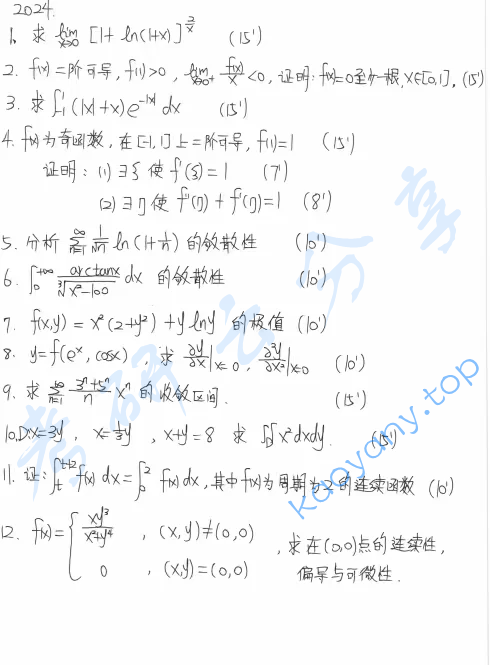 2024.
1. 求 lim_{x→0} [1+ln(1+x)]^{2/x} (15')
2. f(x)二阶可导, f(1)>0, lim_{x→0+} f(x)/x <0, 证明: f(x)=0至少一根, x∈[0,1]. (15')
3. 求 ∫_{-1}^{1} (|x|+x)e^{-|x|} dx (15')
4. f(x)为奇函数, 在[-1,1]上二阶可导, f(1)=1 (15')
证明: (1) ∃ξ 使 f'(ξ)=1 (7')
(2) ∃η 使 f''(η)+f'(η)=1 (8')
5. 分析 ∑_{n=1}^{∞} 1/√n ln(1+1/n) 的敛散性 (10')
6. ∫_0^{+∞} arctanx/∛(x²-100) dx 的敛散性 (10')
7. f(x,y)=x²(2+y²)+ylny 的极值 (10')
8. y=f(e^x, cosx), 求 ∂y/∂x|_{x=0}, ∂²y/∂x²|_{x=0} (10')
9. 求 ∑_{n=1}^{∞} (3^n+5^n)/n x^n 的收敛区间. (15')
10. D: x=3y, x=⅓y, x+y=8 求 ∬_D x²dxdy. (15')
11. 证: ∫_t^{t+2} f(x) dx=∫_0^2 f(x) dx, 其中f(x)为周期为2的连续函数 (10')
12. f(x)= { xy³/(x²+y⁴) , (x,y)≠(0,0)
0 , (x,y)=(0,0)
, 求在(0,0)点的连续性,
偏导与可微性.
考研云分享
kaoyany.top